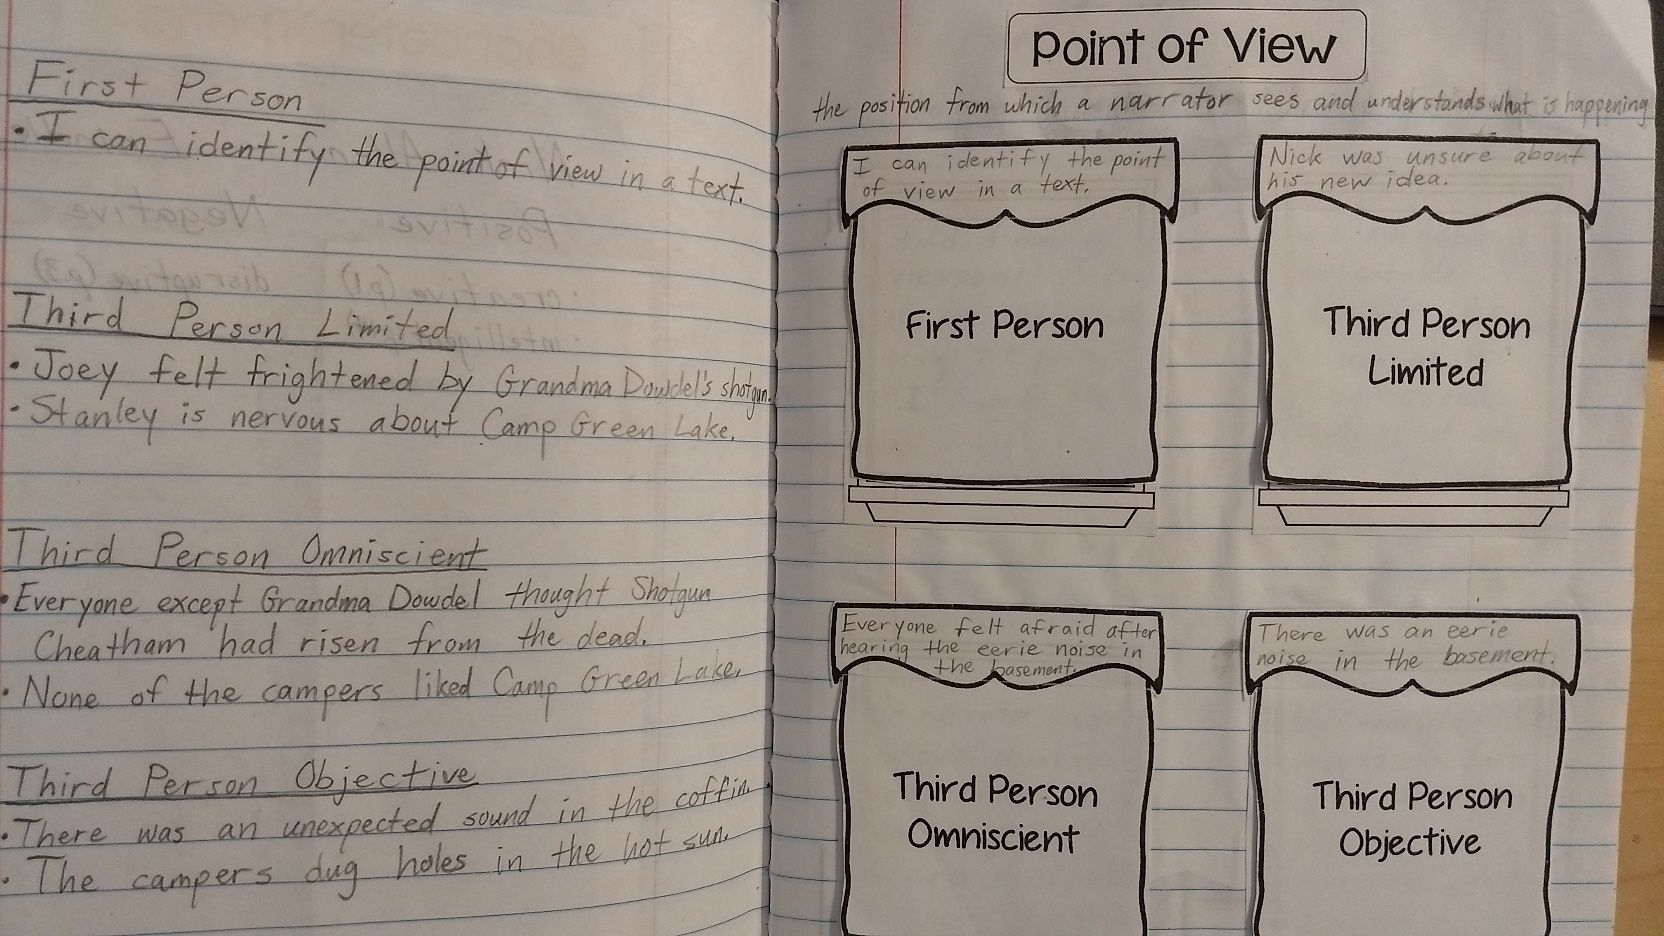 First Person
• I can identify the point of view in a text.
Third Person Limited
• Joey felt frightened by Grandma Dowdel's shotgun.
• Stanley is nervous about Camp Green Lake.
Third Person Omniscient
• Everyone except Grandma Dowdel thought Shotgun
Cheatham had risen from the dead.
• None of the campers liked Camp Green Lake.
Third Person Objective
• There was an unexpected sound in the coffin.
• The campers dug holes in the hot sun.
Point of View
the position from which a narrator sees and understands what is happening
I can identify the point
of view in a text.
First Person
Nick was unsure about
his new idea.
Third Person
Limited
Everyone felt afraid after
hearing the eerie noise in
the basement.
Third Person
Omniscient
There was an eerie
noise in the basement.
Third Person
Objective